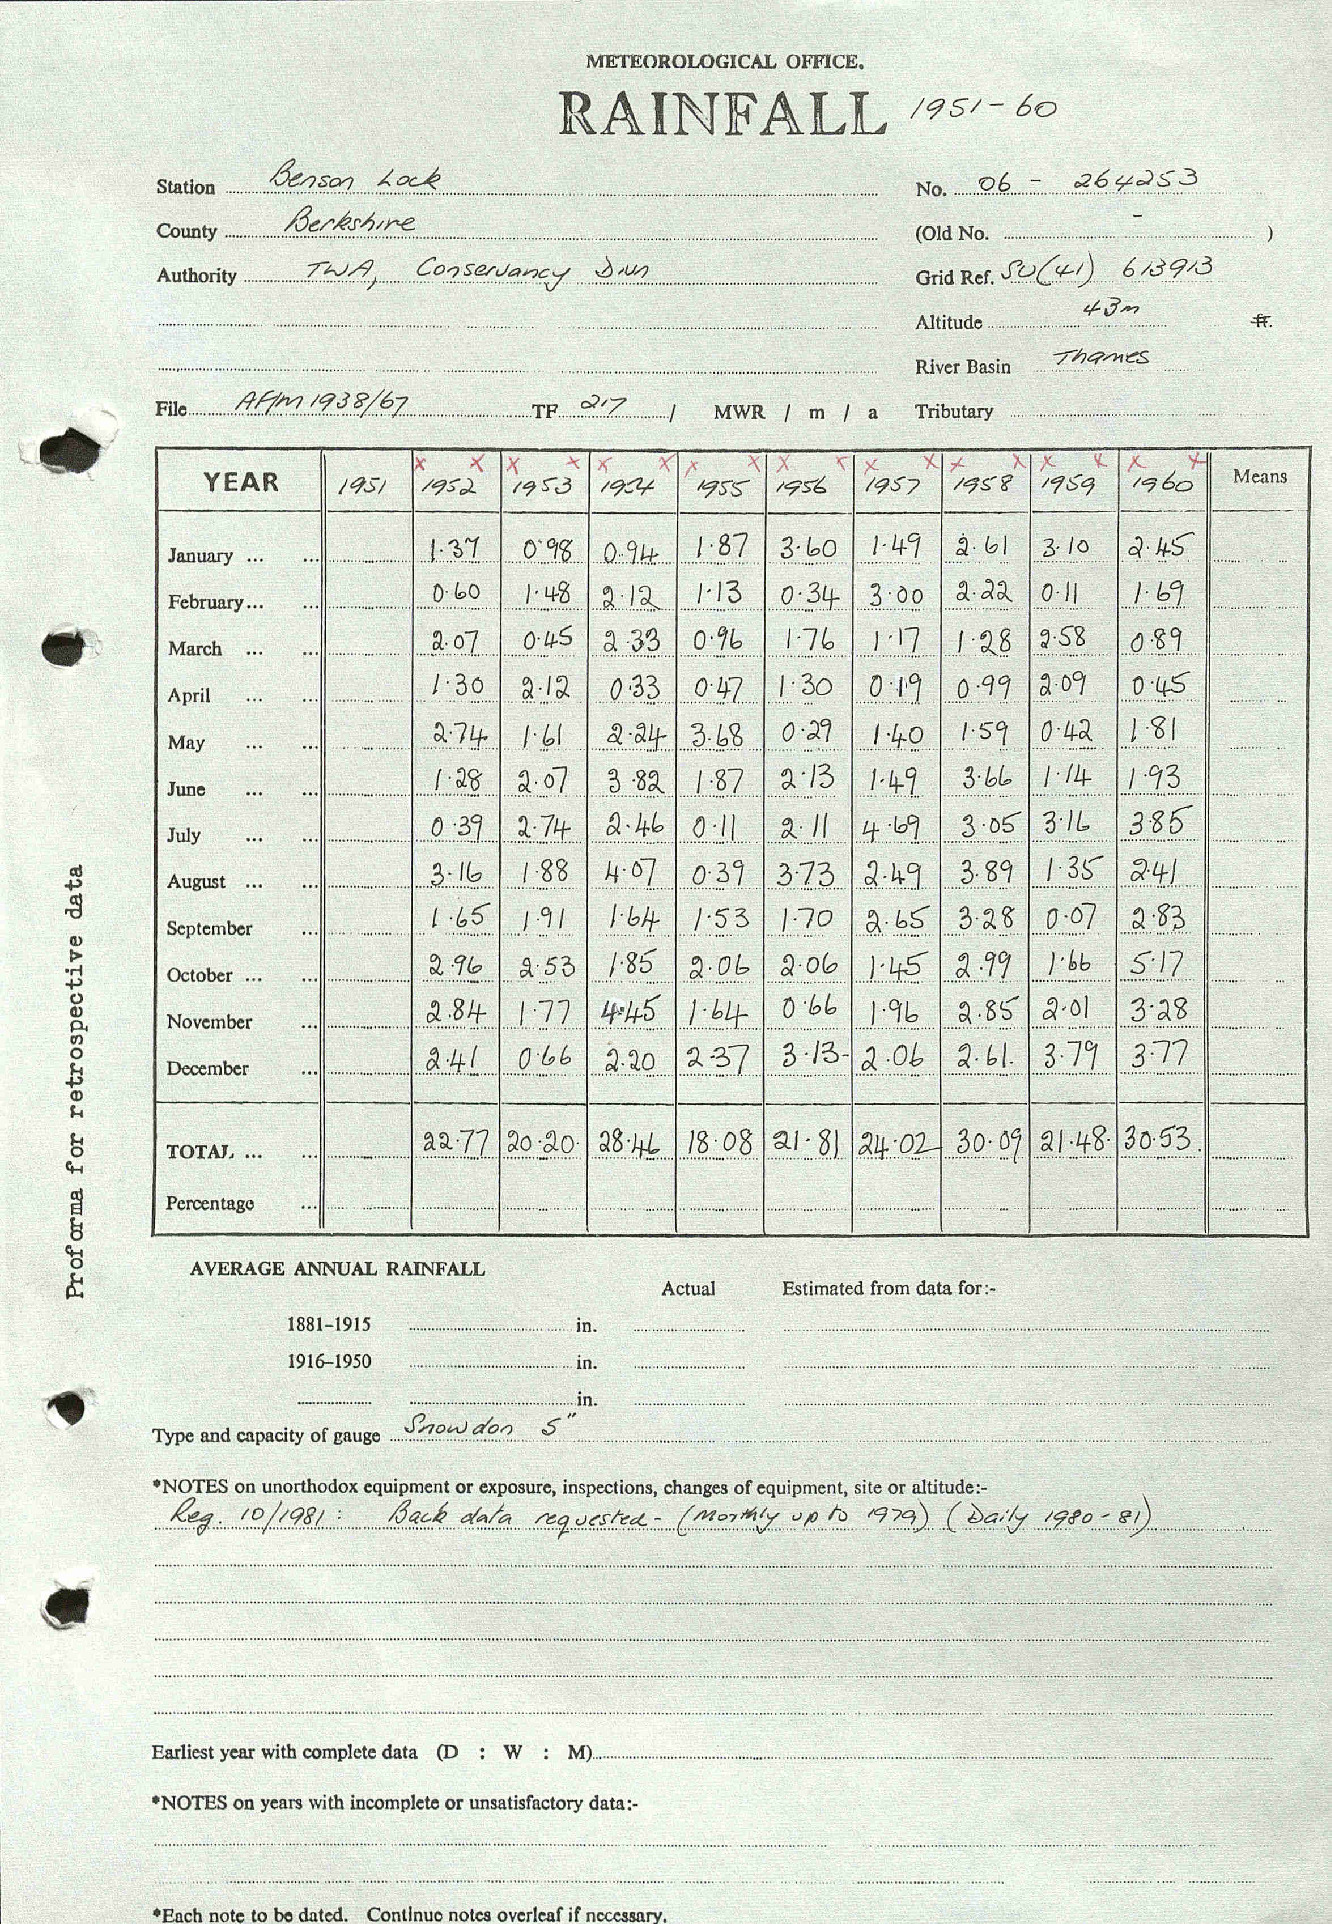 METEOROLOGICAL OFFICE.
RAINFALL 1951-60
Station Benson Lock No. 06 - 264253
County Berkshire (Old No. - )
Authority TWA, Conservancy Divn Grid Ref. SU(41) 613913
Altitude 43m ft.
River Basin Thames
File AF/M1938/67 TF 217 / MWR / m / a Tributary
YEAR 1951 1952 1953 1954 1955 1956 1957 1958 1959 1960 Means
January ... ... 1.37 0.98 0.94 1.87 3.60 1.49 2.61 3.10 2.45
February ... ... 0.60 1.48 2.12 1.13 0.34 3.00 2.22 0.11 1.69
March ... ... 2.07 0.45 2.33 0.96 1.76 1.17 1.28 2.58 0.89
April ... ... 1.30 2.12 0.33 0.47 1.30 0.19 0.99 2.09 0.45
May ... ... 2.74 1.61 2.24 3.68 0.29 1.40 1.59 0.42 1.81
June ... ... 1.28 2.07 3.82 1.87 2.13 1.49 3.66 1.14 1.93
July ... ... 0.39 2.74 2.46 0.11 2.11 4.69 3.05 3.16 3.85
August ... ... 3.16 1.88 4.07 0.39 3.73 2.49 3.89 1.35 2.41
September ... 1.65 1.91 1.64 1.53 1.70 2.65 3.28 0.07 2.83
October ... ... 2.96 2.53 1.85 2.06 2.06 1.45 2.99 1.66 5.17
November ... 2.84 1.77 4.45 1.64 0.66 1.96 2.85 2.01 3.28
December ... 2.41 0.66 2.20 2.37 3.13 2.06 2.61 3.79 3.77
TOTAL ... ... 22.77 20.20 28.46 18.08 21.81 24.02 30.09 21.48 30.53
Percentage ...
Proforma for retrospective data
AVERAGE ANNUAL RAINFALL
Actual Estimated from data for:-
1881-1915 in.
1916-1950 in.
in.
Type and capacity of gauge Snowdon 5"
*NOTES on unorthodox equipment or exposure, inspections, changes of equipment, site or altitude:-
Reg. 10/1981: Back data requested - (Monthly up to 1979) (Daily 1980-81)
Earliest year with complete data (D : W : M)
*NOTES on years with incomplete or unsatisfactory data:-
*Each note to be dated. Continue notes overleaf if necessary.